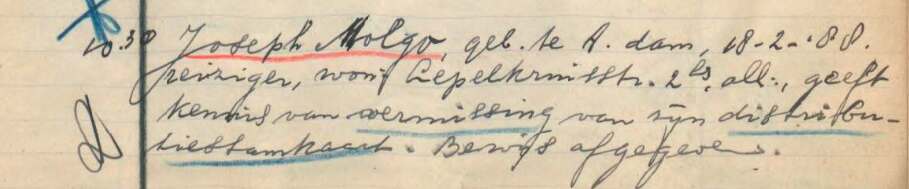 10.30 Joseph Molgo, geb. te A.dam, 18-2-'88.
reiziger, won. Cepelkruisstr. 2hs, all., geeft
kennis van vermissing van zijn distribu-
tiestamkaart. Bewijs afgegeven.